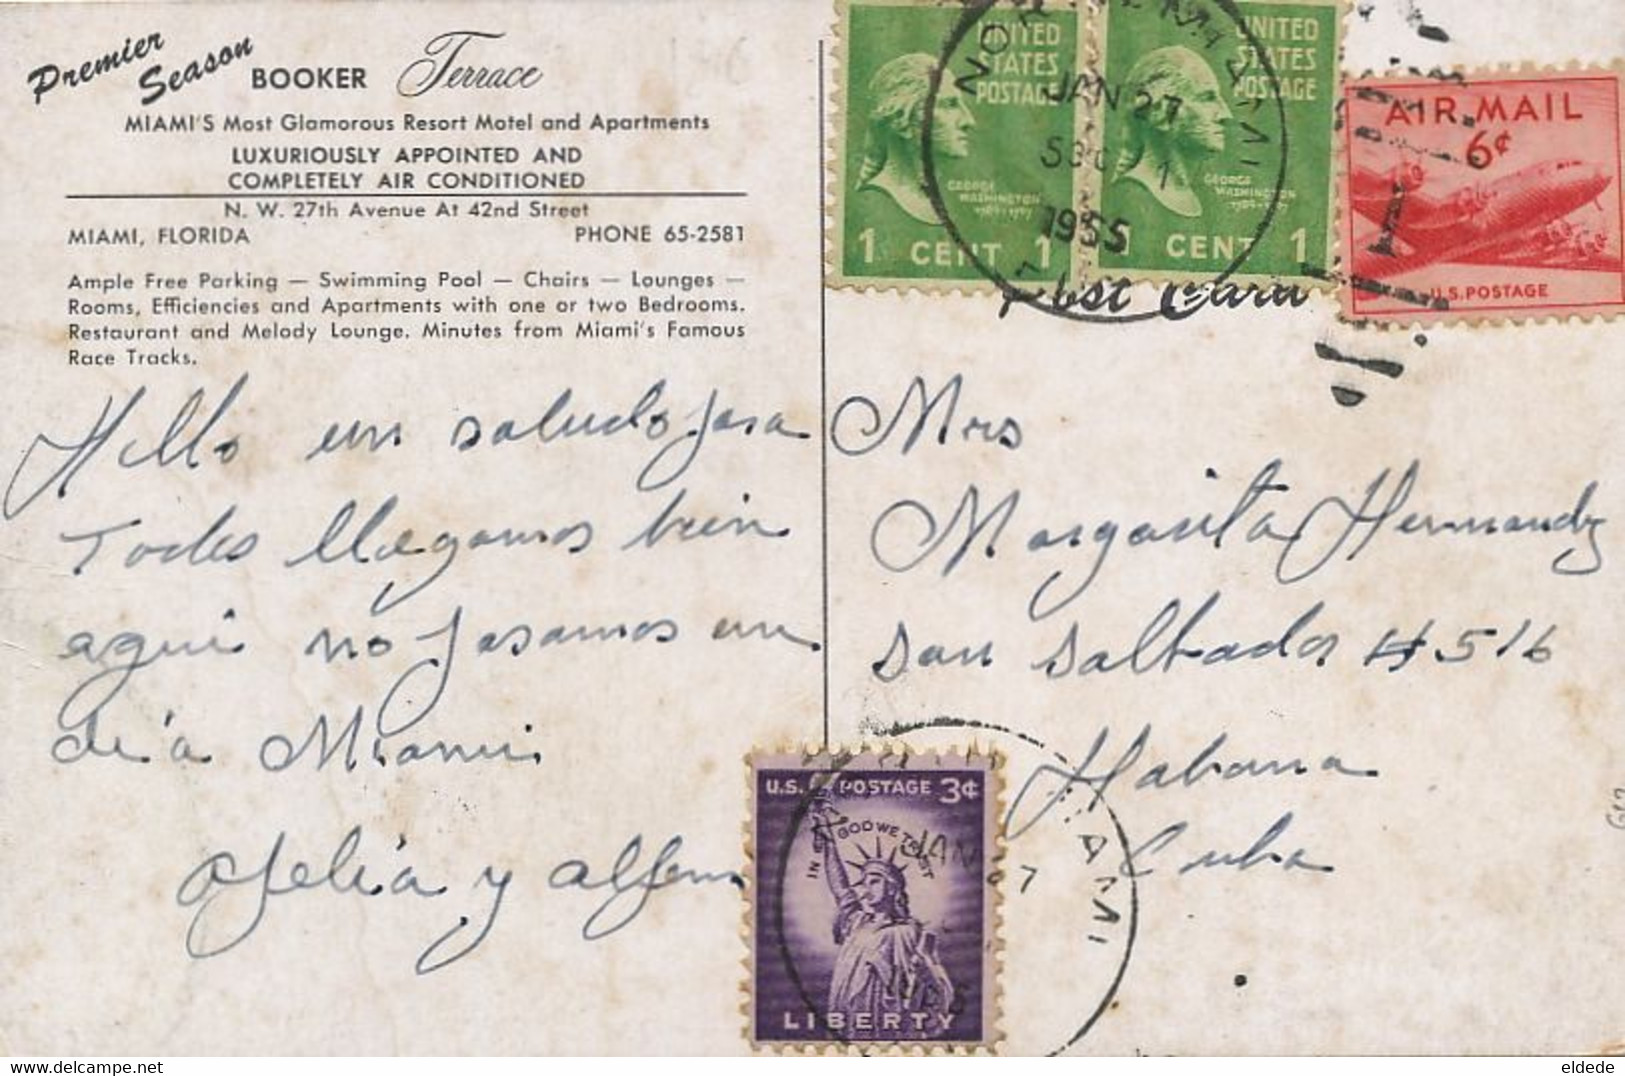 Premier
Season
BOOKER Terrace
MIAMI'S Most Glamorous Resort Motel and Apartments
LUXURIOUSLY APPOINTED AND
COMPLETELY AIR CONDITIONED
N. W. 27th Avenue At 42nd Street
MIAMI, FLORIDA PHONE 65-2581
Ample Free Parking — Swimming Pool — Chairs — Lounges —
Rooms, Efficiencies and Apartments with one or two Bedrooms.
Restaurant and Melody Lounge. Minutes from Miami's Famous
Race Tracks.
Hello un saludo para
Todos llegamos bien
aqui no pasamos un
día Miami
Ofelia y
UNITED
STATES
POSTAGE
GEORGE
WASHINGTON
1 CENT 1
UNITED
STATES
POSTAGE
GEORGE
WASHINGTON
1 CENT 1
JAN 27
1955
AIR MAIL
6¢
U.S. POSTAGE
Post Card
Mrs
Margarita Hernandz
San Salbador # 516
Habana
Cuba
U.S. POSTAGE 3¢
IN GOD WE TRUST
LIBERTY
JAN 27
AMI
delcampe.net
eldede